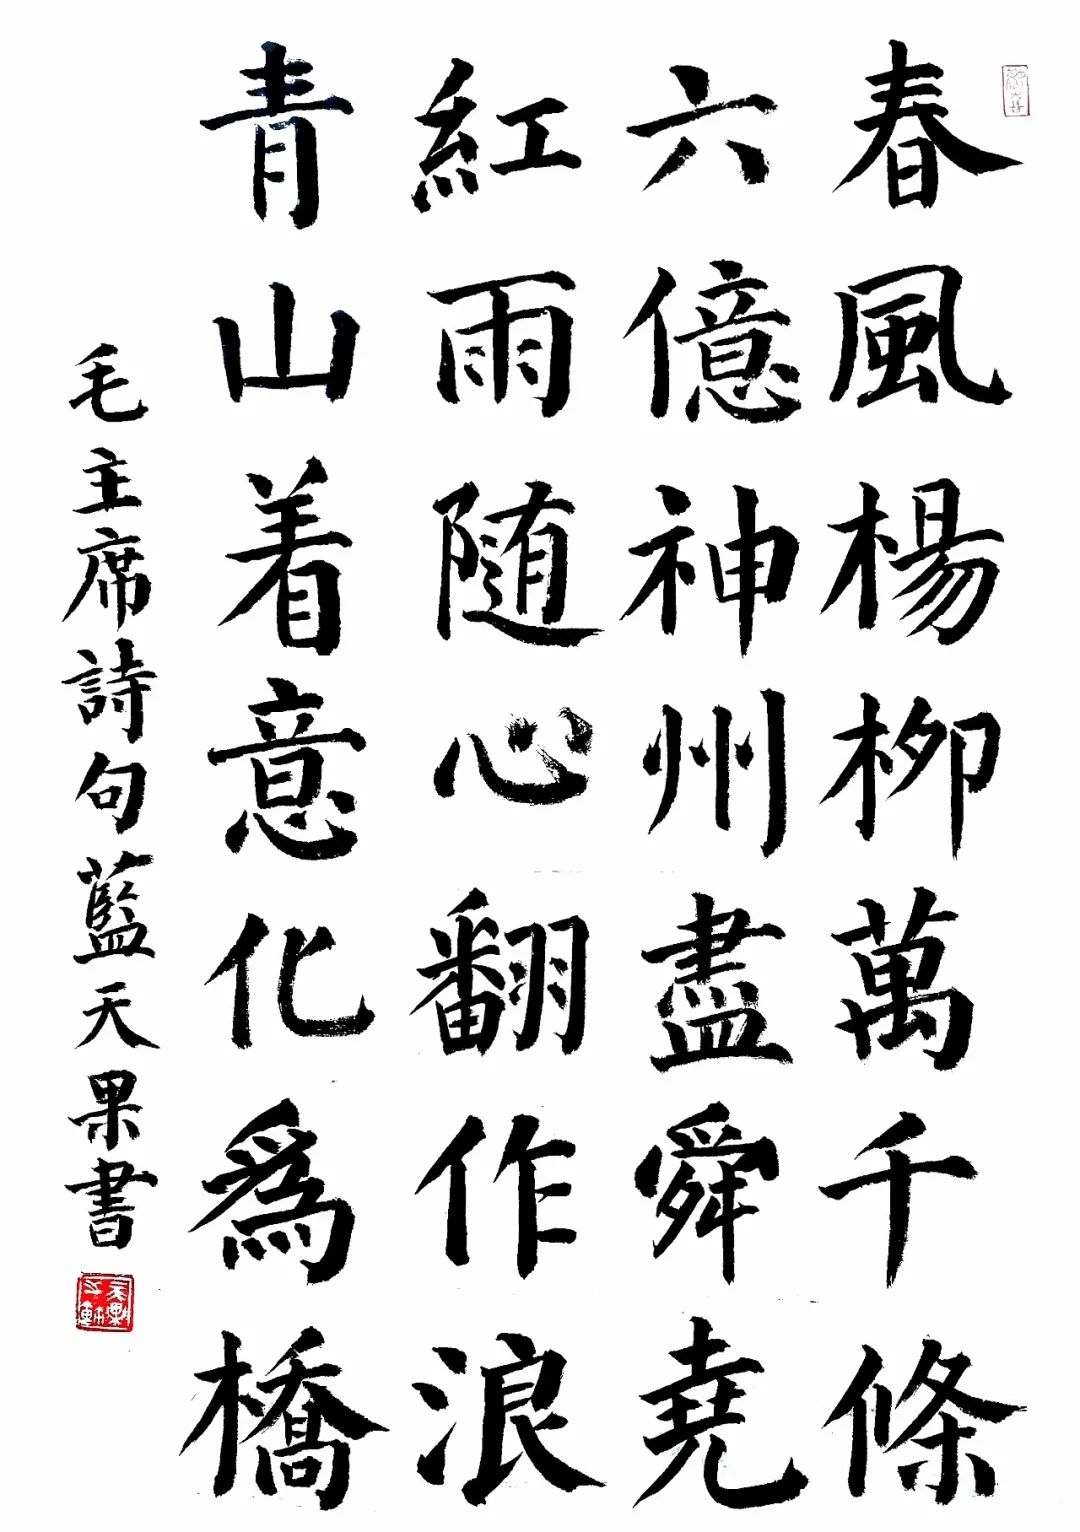 春風楊柳萬千條
六億神州盡舜堯
紅雨随心翻作浪
青山着意化爲橋
毛主席詩句藍天果書